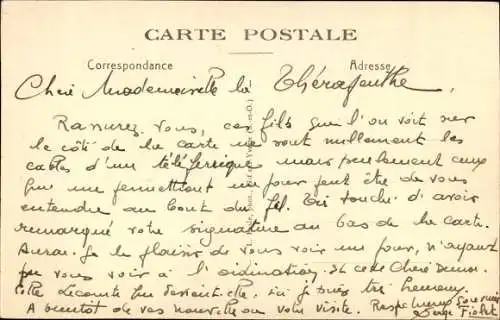 CARTE POSTALE
Correspondance
Adresse
Chère Mademoiselle la Thérapeuthe,
Rassurez vous, ces fils que l'on voit sur
le côté de la carte ne sont nullement les
cables d'un téléferrique mais seulement ceux
qui me permettront un jour peut être de vous
entendre au bout du fil. Très touché d'avoir
remarqué votre signature au bas de la carte.
Aurai-je le plaisir de vous voir un jour, n'ayant
pu vous voir à l'ordination, et ce cher
Lecomte que devient-elle. ici je suis très heureux.
A bientôt de vos nouvelles ou votre visite. Respectueux souvenir
Serge